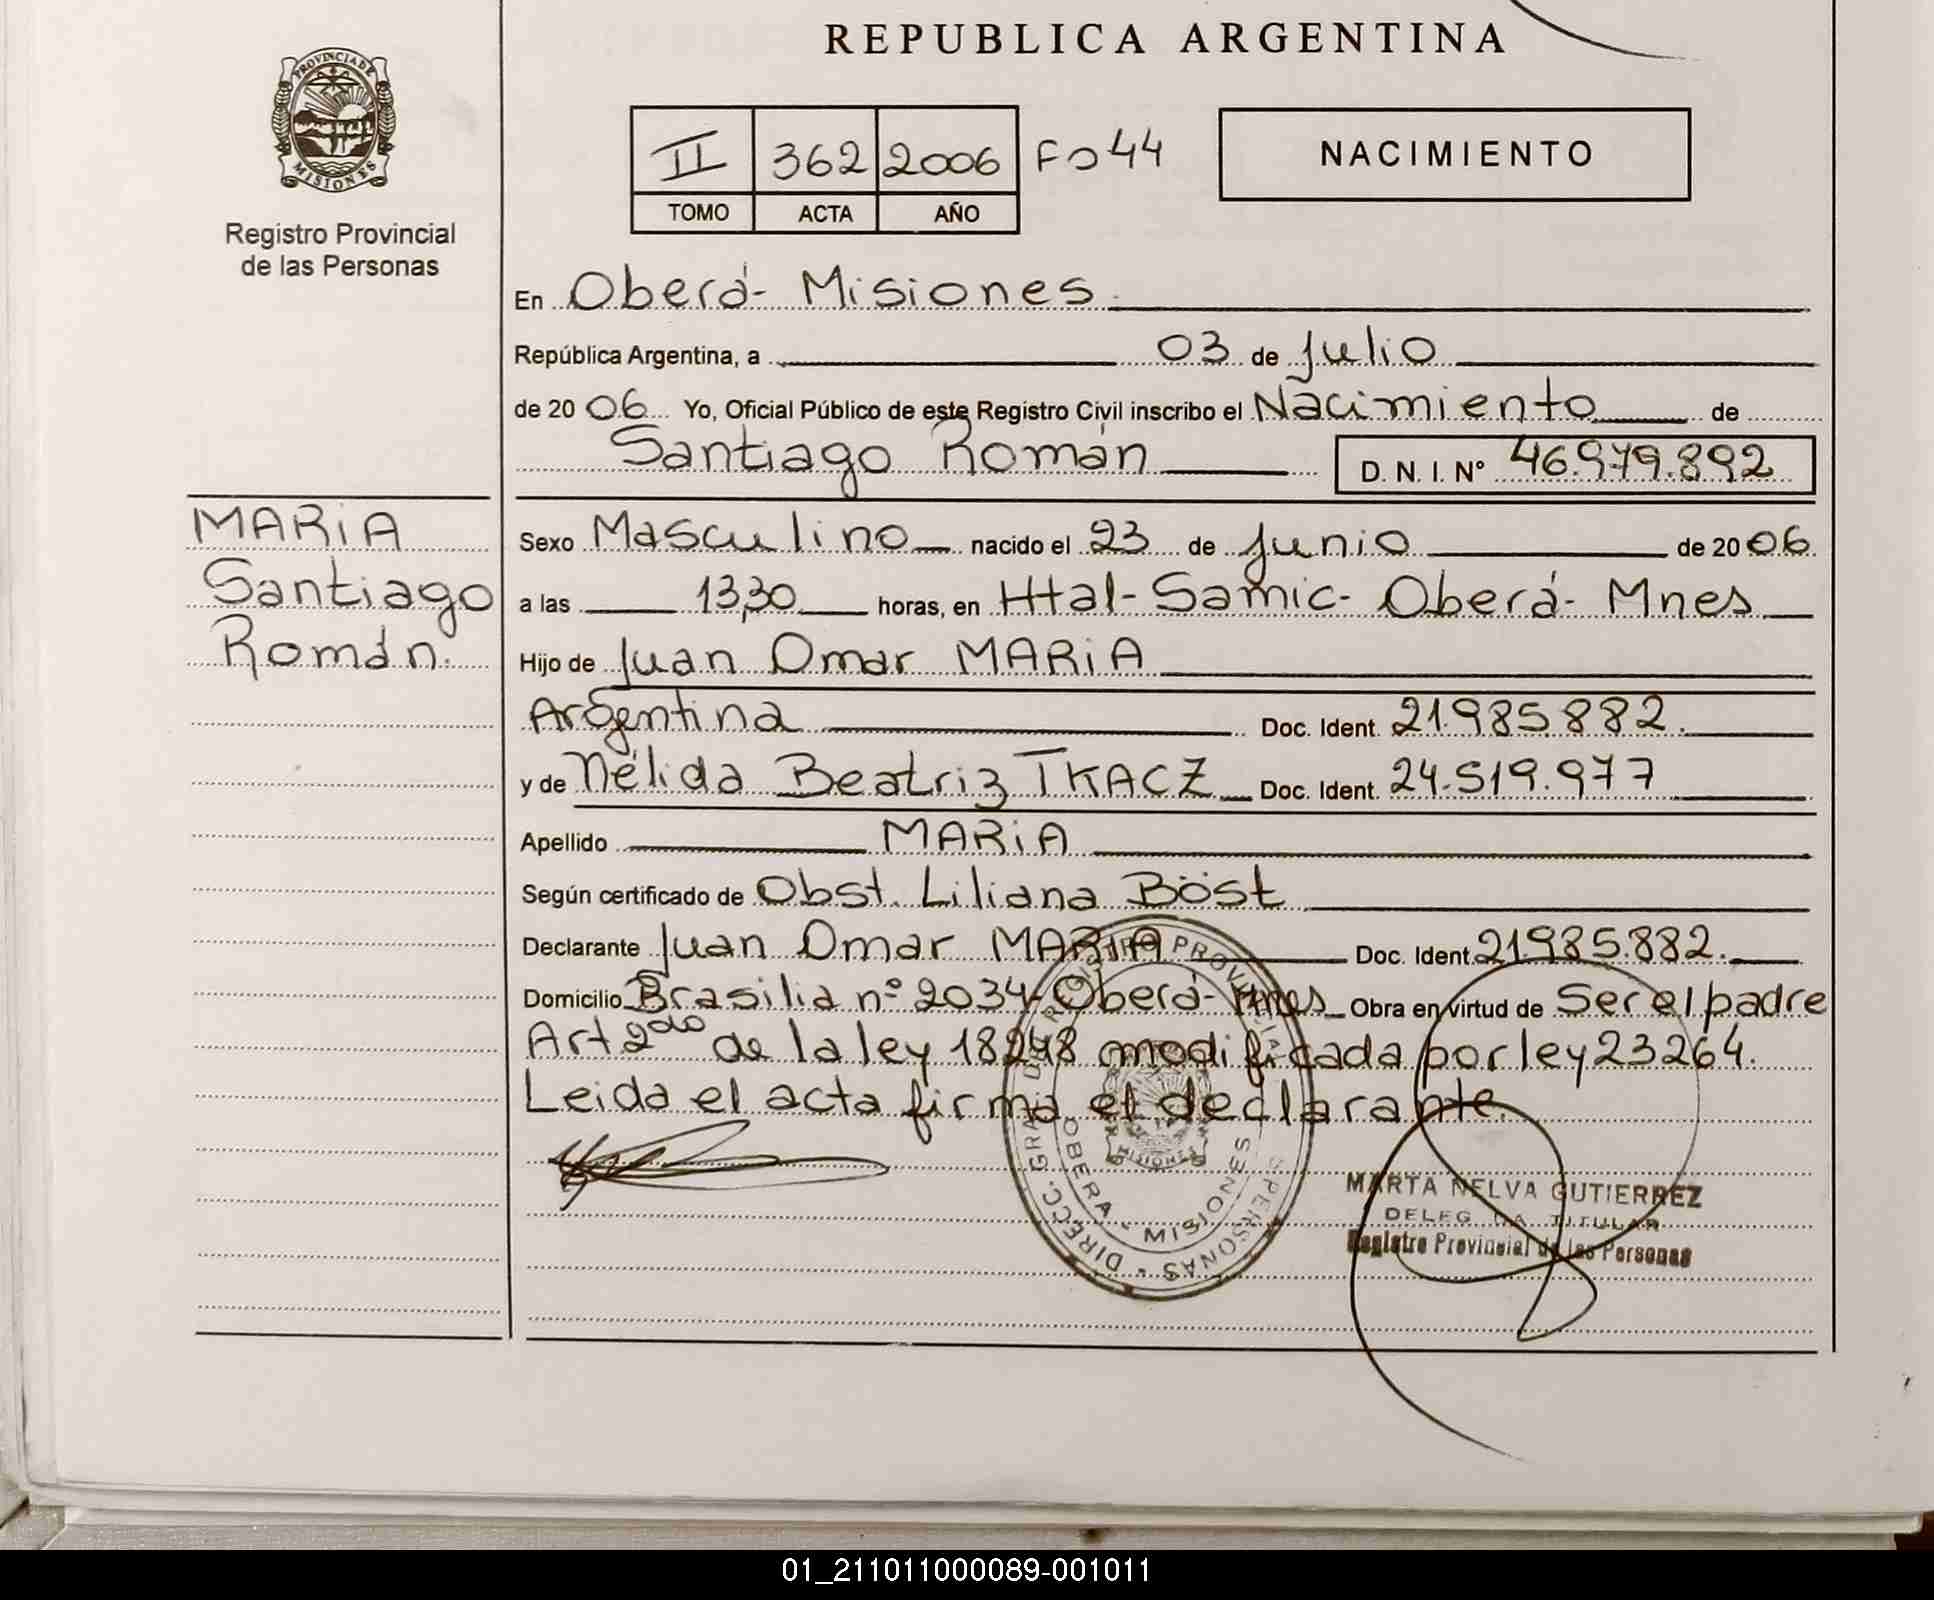 REPUBLICA ARGENTINA
PROVINCIA DE
MISIONES
Registro Provincial
de las Personas
II 362 2006 Fo 44
TOMO ACTA AÑO
NACIMIENTO
En Oberá- Misiones
República Argentina, a 03 de Julio
de 20 06 Yo, Oficial Público de este Registro Civil inscribo el Nacimiento de
Santiago Román D. N. I. N° 46.979.892
MARiA
Santiago
Román.
Sexo Masculino nacido el 23 de Junio de 20 06
a las 13,30 horas, en Htal- Samic- Oberá- Mnes
Hijo de Juan Omar MARiA
Argentina Doc. Ident. 21.985.882.
y de Nélida Beatriz TKACZ Doc. Ident. 24.519.977
Apellido MARiA
Según certificado de Obst. Liliana Böst
Declarante Juan Omar MARiA Doc. Ident. 21.985.882.
Domicilio Brasilia nº 2034- Oberá- Mnes Obra en virtud de Ser el padre
Art 2do de la ley 18248 modificada por ley 23264.
Leida el acta firma el declarante.
DIRECC. GRAL. DEL REGISTRO PROVINCIAL PERSONAS
OBERA - MISIONES
MISIONES
MARTA NELVA GUTIERREZ
DELEGADA TITULAR
Registro Provincial de las Personas
01_211011000089-001011